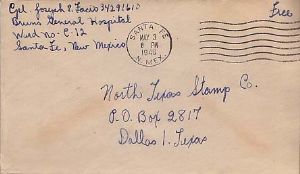 Cpl. Joseph P. Facio 34291610
Bruns General Hospital
Ward No. C-12
Santa Fe, New Mexico
Free
SANTA FE
MAY 3
6 PM
1946
N. MEX.
North Texas Stamp Co.
P.O. Box 2817
Dallas 1, Texas